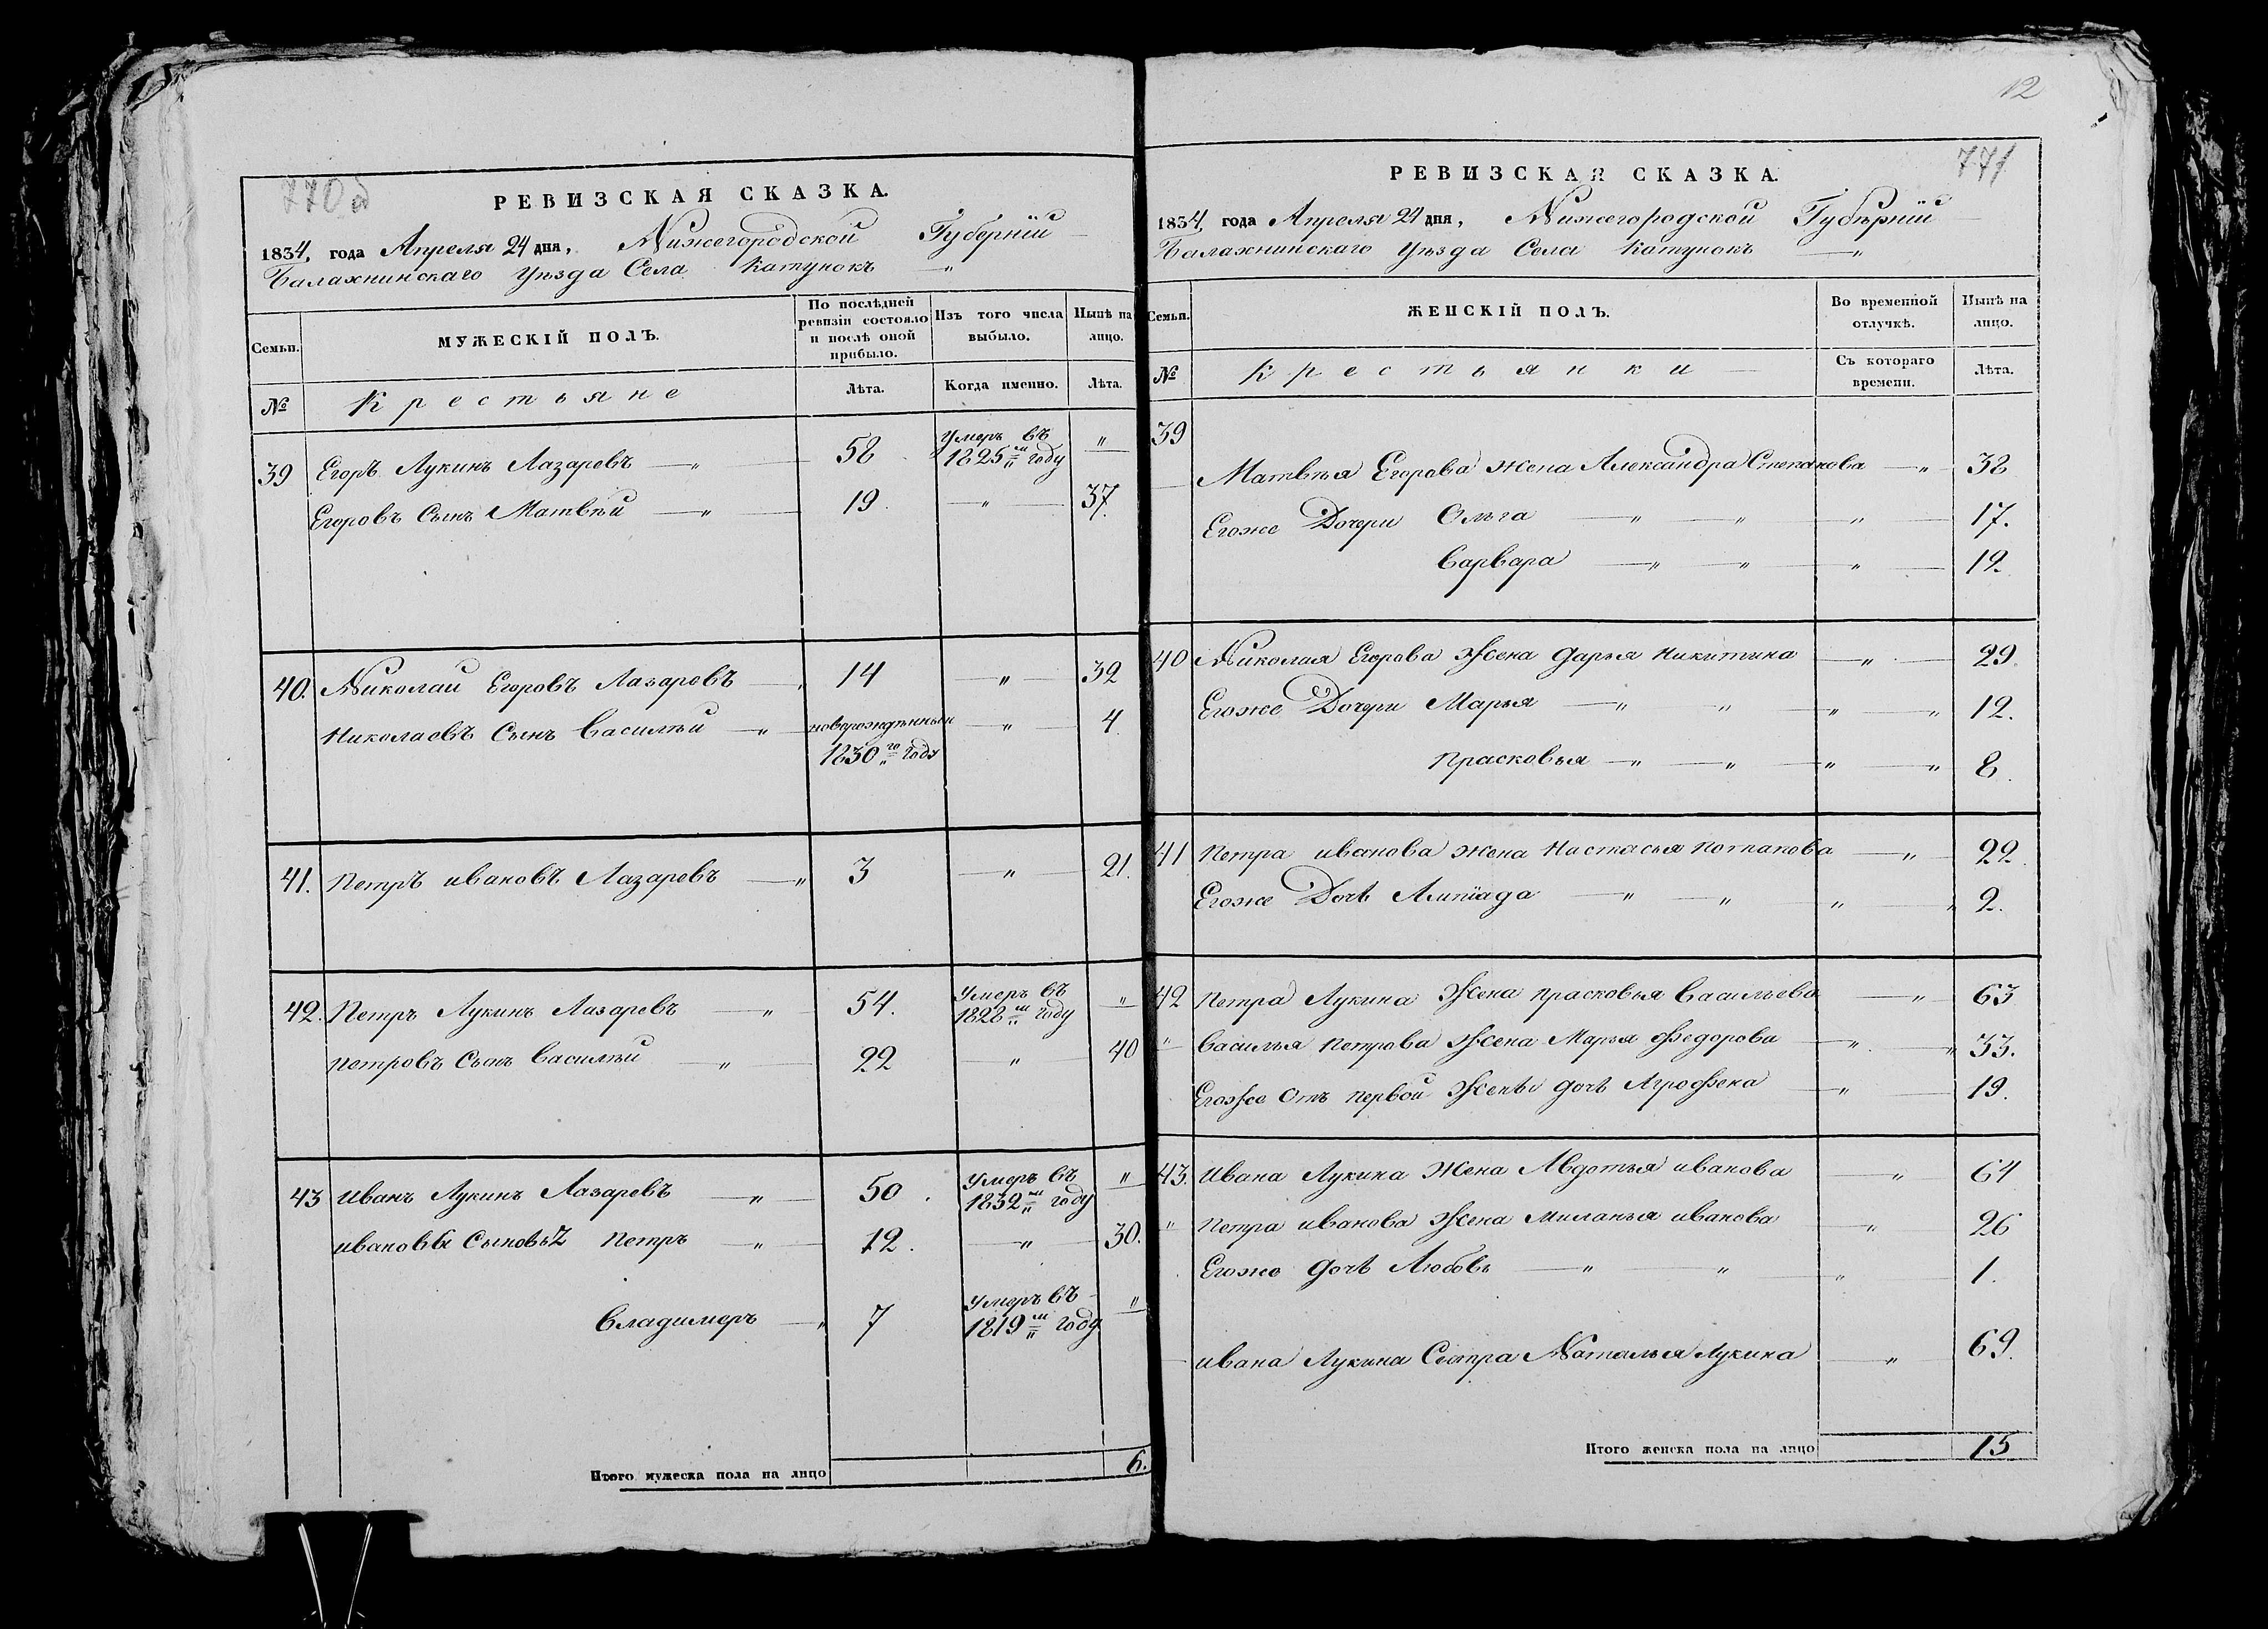 770 д
РЕВИЗСКАЯ СКАЗКА.
1834, года Апреля 24 дня, Нижегородской Губернïи
Балахнинскаго уѣзда Села Катунокъ — „
Семьи.
МУЖЕСКІЙ ПОЛЪ.
По послѣдней ревизіи состояло и послѣ оной прибыло.
Изъ того числа выбыло.
Нынѣ на лицо.
№
Крестьяне
Лѣта.
Когда именно.
Лѣта.
39 Егоръ Лукинъ Лазаревъ — „ 58 умеръ въ 1825 м году „
Егоровъ Сынъ Матвѣй — „ 19. — „ — 37.
40. Николай Егоровъ Лазаревъ — „ 14 — „ — 32
Николаевъ Сынъ Василѣй — „ новорожденный 1830 го году — „ 4
41. Петръ ивановъ Лазаревъ — „ 3 — „ — 21.
42. Петръ Лукинъ Лазаревъ — „ 54. умеръ въ 1828 м году „
петровъ Сынъ Василѣй — „ 22 „ 40
43 иванъ Лукинъ Лазаревъ — „ 50. умеръ въ 1832 м году „
ивановы Сыновья Петръ — „ 12. — „ — 30.
Владимеръ — „ 7 умеръ въ 1819 м году „
Итого мужеска пола на лицо 6.
12
771
РЕВИЗСКАЯ СКАЗКА.
1834, года Апреля 24 дня, Нижегородской Губѣрнïи —
Балахнинскаго уѣзда Села Катунокъ — „
Семьи.
ЖЕНСКІЙ ПОЛЪ.
Во временной отлучкѣ.
Нынѣ на лицо.
№
Крестьянки —
Съ котораго времени.
Лѣта.
39
Матвѣя Егорова жена Александра Степанова — „ 38
Егоже Дочери Ольга — „ — „ „ — 17.
Варвара — „ — „ — „ — 12
40 Николая Егорова Жена дарья Никитина — „ — 29.
Егоже Дочери Марья — „ „ — „ — „ 12.
Прасковья — „ — „ — „ — „ 8.
41 Петра иванова жена Настасья Потапова — „ 22.
Егоже Дочь Алипïада — „ — „ „ — „ 2.
42 Петра Лукина Жена прасковья Васильева — „ 63
„ Василья Петрова Жена Марья Федорова — „ — „ 33.
Егоже Отъ первой Жены дочь Агрофена — „ — 19.
43. Ивана Лукина Жена Авдотья иванова — „ 64
„ Петра иванова Жена Миланья иванова — „ 26
Егоже дочь Любовь — „ — „ — „ — 1.
ивана Лукина Сестра Наталья Лукина — „ 69.
Итого женска пола на лицо 15